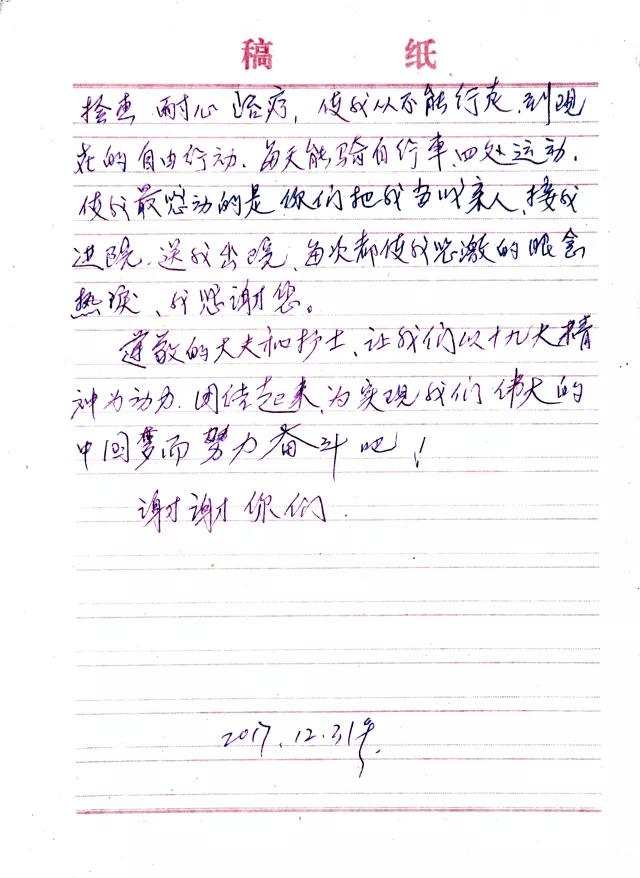 稿 纸
检查 耐心治疗，使我从不能行走，到现
在的自由行动．每天能骑自行车，四处运动．
使我最感动的是你们把我当成亲人、接我
进院．送我出院、每次都使我感激的眼含
热泪、我感谢您。
尊敬的大夫和护士、让我们以十九大精
神为动力．团结起来，为实现我们伟大的
中国梦而努力奋斗吧！
谢谢你们．
2017．12．31号．